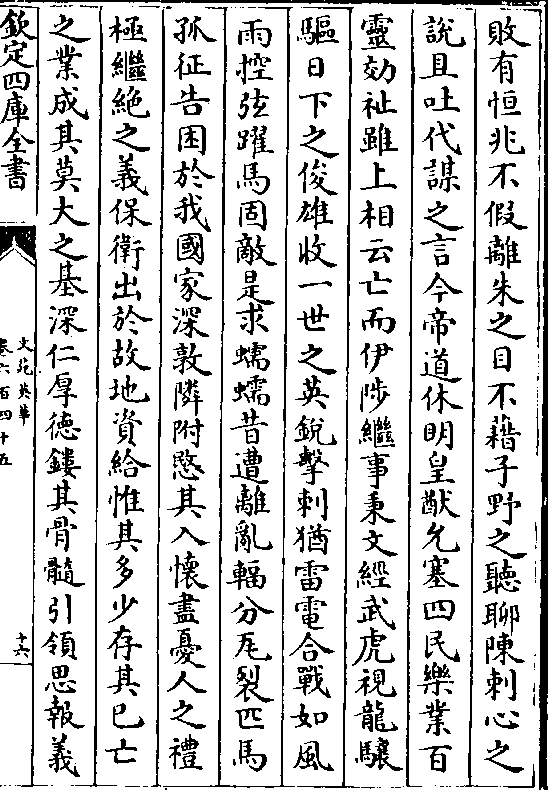 敗有恒兆不假離朱之目不藉子野之聽聊陳刺心之
說且吐代謀之言今帝道休明皇猷允塞四民樂業百
靈効祉雖上相云亡而伊陟繼事秉文經武虎視龍驤
驅日下之俊雄收一世之英銳擊刺猶雷電合戰如風
雨控弦躍馬固敵是求蠕蠕昔遭離亂輻分瓦裂匹馬
孤征告困於我國家深敦隣附愍其入懷盡憂人之禮
極繼絶之義保衛出於故地資給惟其多少存其已亡
之業成其莫大之基深仁厚德鏤其骨髓引領思報義
欽定四庫全書
文苑英華
卷六百四十五
十六